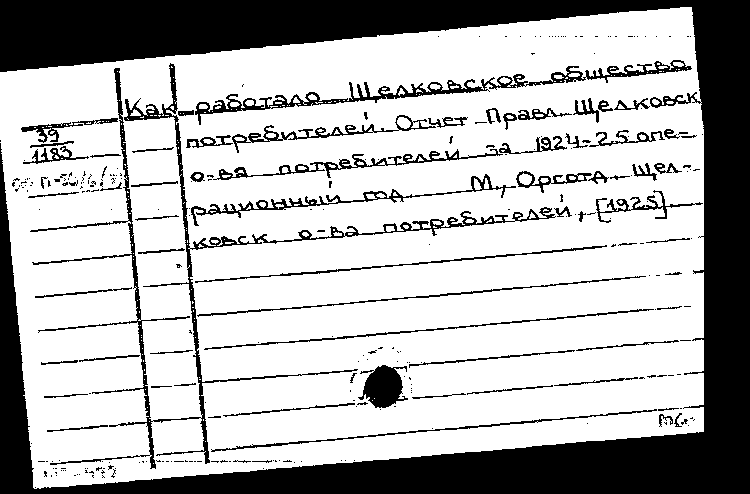 Как работало Щелковское общество
39
1183
потребителей. Отчет Правл. Щелковск
о-ва потребителей за 1924-25 опе-
рационный год. М., Орготд. Щел-
ковск. о-ва потребителей, [1925].